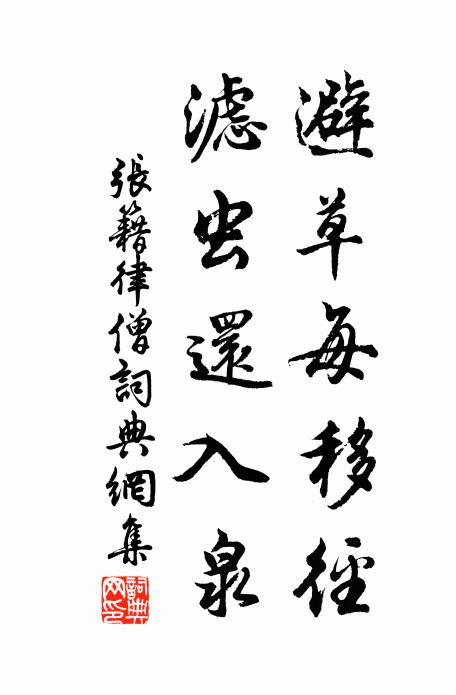 避草每移徑
滤虫還入泉
張籍律僧詞典網集
詞典網印